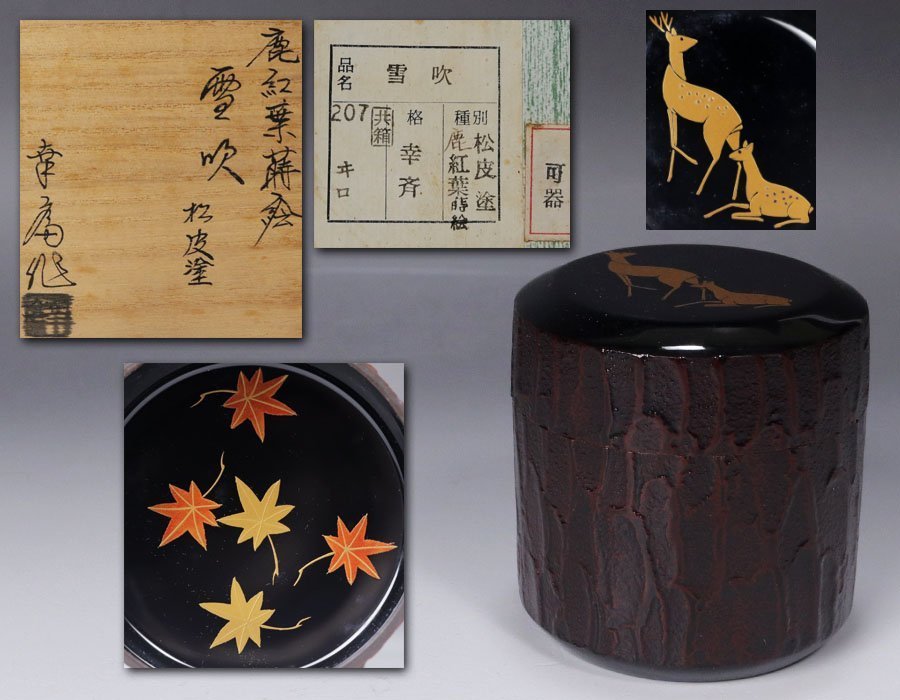 鹿紅葉蒔絵
雪吹
松皮塗
幸斎作
品名
雪吹
種別
松皮塗
鹿紅葉蒔絵
格
幸斉
207
共箱
ヰロ
可器